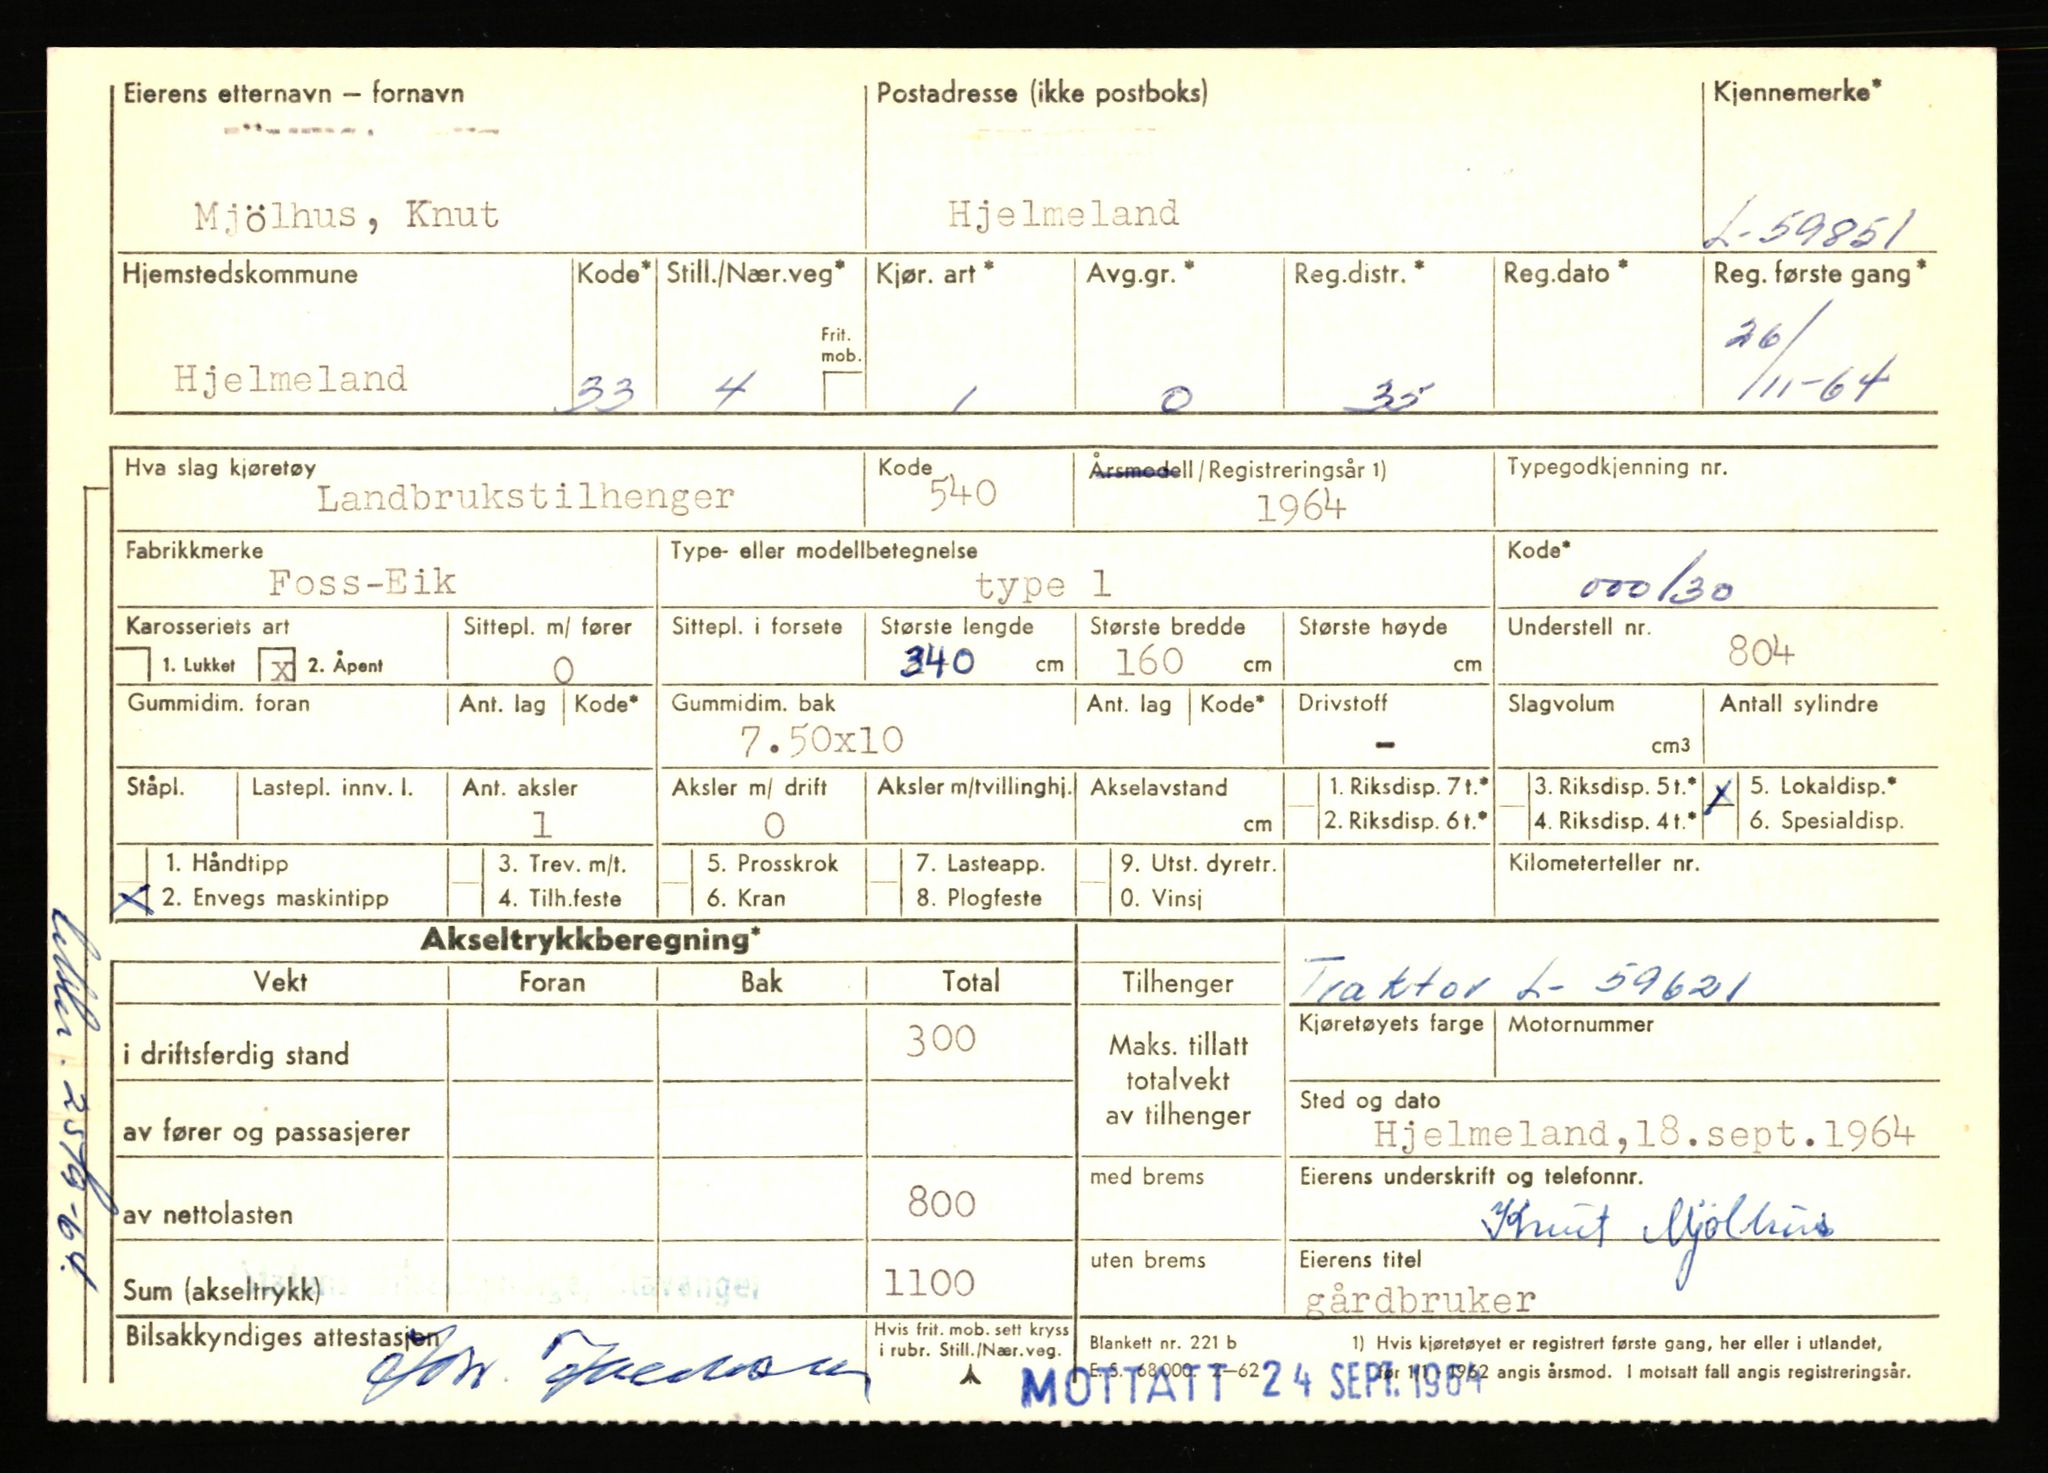 Eierens etternavn – fornavn Postadresse (ikke postboks) Kjennemerke*
Mjölhus, Knut Hjelmeland L-59851
Hjemstedskommune Kode* Still./Nær.veg* Kjør. art* Avg.gr.* Reg.distr.* Reg.dato* Reg. første gang*
Frit. mob.
Hjelmeland 33 4 1 0 35 26/11-64
Hva slag kjøretøy Kode Årsmodell/Registreringsår 1) Typegodkjenning nr.
Landbrukstilhenger 540 1964
Fabrikkmerke Type- eller modellbetegnelse Kode*
Foss-Eik type 1 000/30
Karosseriets art Sittepl. m/ fører Sittepl. i forsete Største lengde Største bredde Største høyde Understell nr.
1. Lukket x 2. Åpent 0 340 cm 160 cm cm 804
Gummidim. foran Ant. lag Kode* Gummidim. bak Ant. lag Kode* Drivstoff Slagvolum Antall sylindre
7.50x10 - cm3
Ståpl. Lastepl. innv. l. Ant. aksler Aksler m/ drift Aksler m/tvillinghj. Akselavstand 1. Riksdisp. 7 t.* 3. Riksdisp. 5 t.* x 5. Lokaldisp.*
1 0 cm 2. Riksdisp. 6 t.* 4. Riksdisp. 4 t.* 6. Spesialdisp.
1. Håndtipp 3. Trev. m/t. 5. Prosskrok 7. Lasteapp. 9. Utst. dyretr. Kilometerteller nr.
x 2. Envegs maskintipp 4. Tilh.feste 6. Kran 8. Plogfeste 0. Vinsj
Akseltrykkberegning*
Vekt Foran Bak Total Tilhenger Traktor L- 59621
Kjøretøyets farge Motornummer
i driftsferdig stand 300 Maks. tillatt totalvekt av tilhenger
Sted og dato
av fører og passasjerer Hjelmeland,18.sept.1964
med brems Eierens underskrift og telefonnr.
av nettolasten 800 Knut Mjölhus
uten brems Eierens titel
Sum (akseltrykk) 1100 gårdbruker
Bilsakkyndiges attestasjon Hvis frit. mob. sett kryss i rubr. Still./Nær.veg.
Blankett nr. 221 b 1) Hvis kjøretøyet er registrert første gang, her eller i utlandet,
E. S. 68 000. 2–62 før 1/1 - 1962 angis årsmod. I motsatt fall angis registreringsår.
MOTTATT 24 SEPT. 1964
25/9-64.